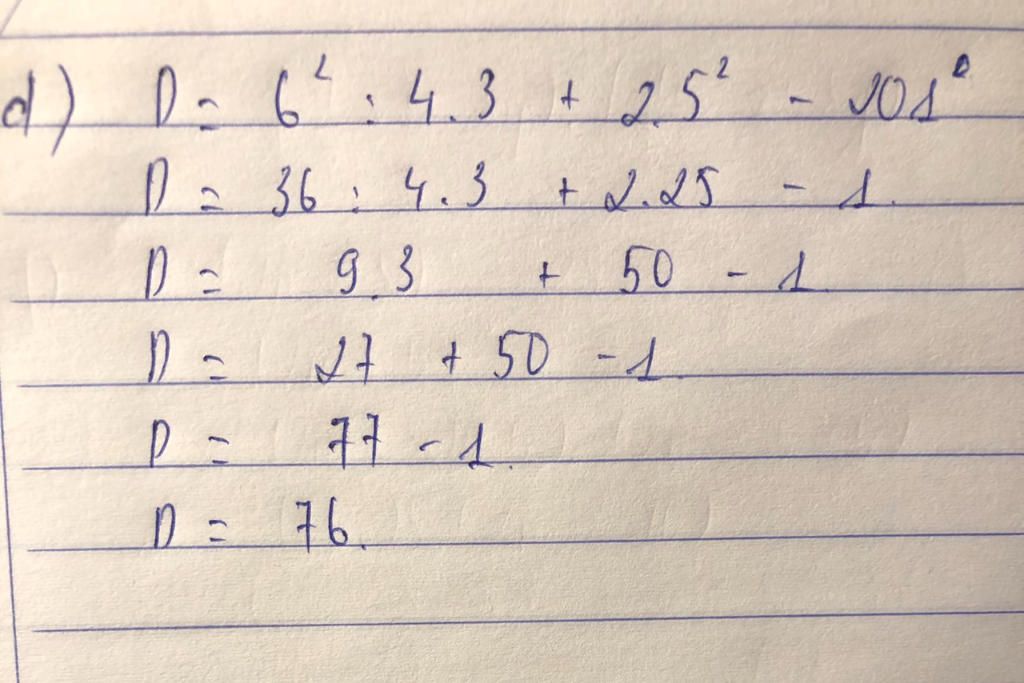 d) D = 6² : 4.3 + 2.5² - 201⁰
D = 36 : 4.3 + 2.25 - 1.
D = 9.3 + 50 - 1
D = 27 + 50 - 1.
D = 77 - 1.
D = 76.